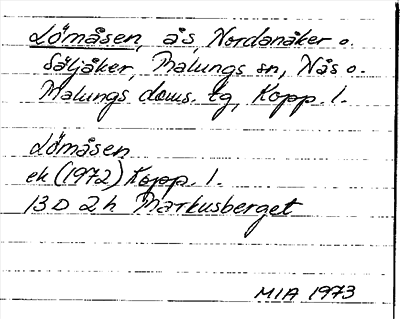 Lömåsen, ås, Nordanåker o.
Säljåker, Malungs sn, Nås o.
Malungs doms. tg, Kopp. l.
Lömåsen
ek (1972) Kopp. l.
13 D 2 h Markusberget
MIA 1973